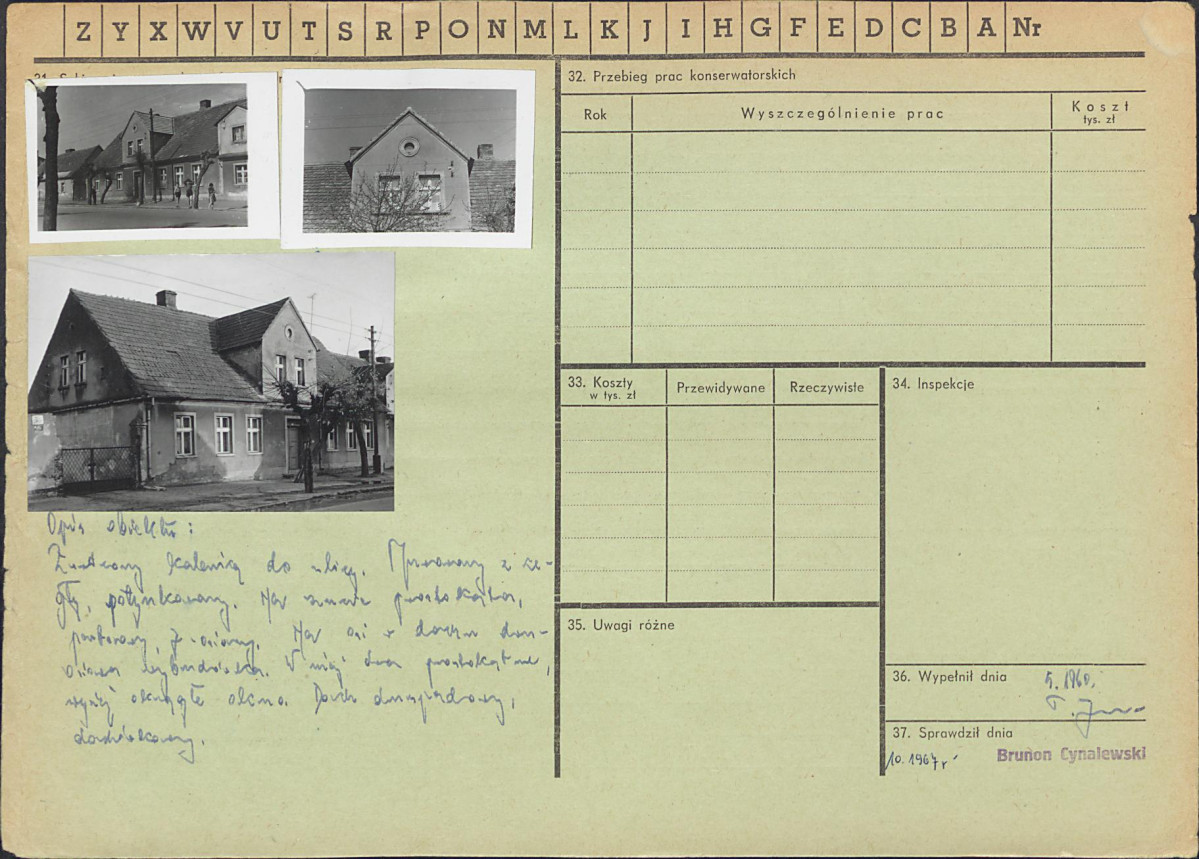 Z Y X W V U T S R P O N M L K J I H G F E D C B A Nr
32. Przebieg prac konserwatorskich
Rok
Wyszczególnienie prac
Koszt
tys. zł
33. Koszty
w tys. zł
Przewidywane
Rzeczywiste
34. Inspekcje
35. Uwagi różne
36. Wypełnił dnia
37. Sprawdził dnia
10.1967 r
Brunon Cynalewski
Opis obiektu:
Zwrócony kalenicą do ulicy. Murowany z ce-
gły, potynkowany. Na rzucie prostokąta,
parterowy, 7-osiowy. Na osi w dachu
W niej dwa prostokątne,
wyżej okrągłe okno. Dach dwuspadowy,
dachówkowy.